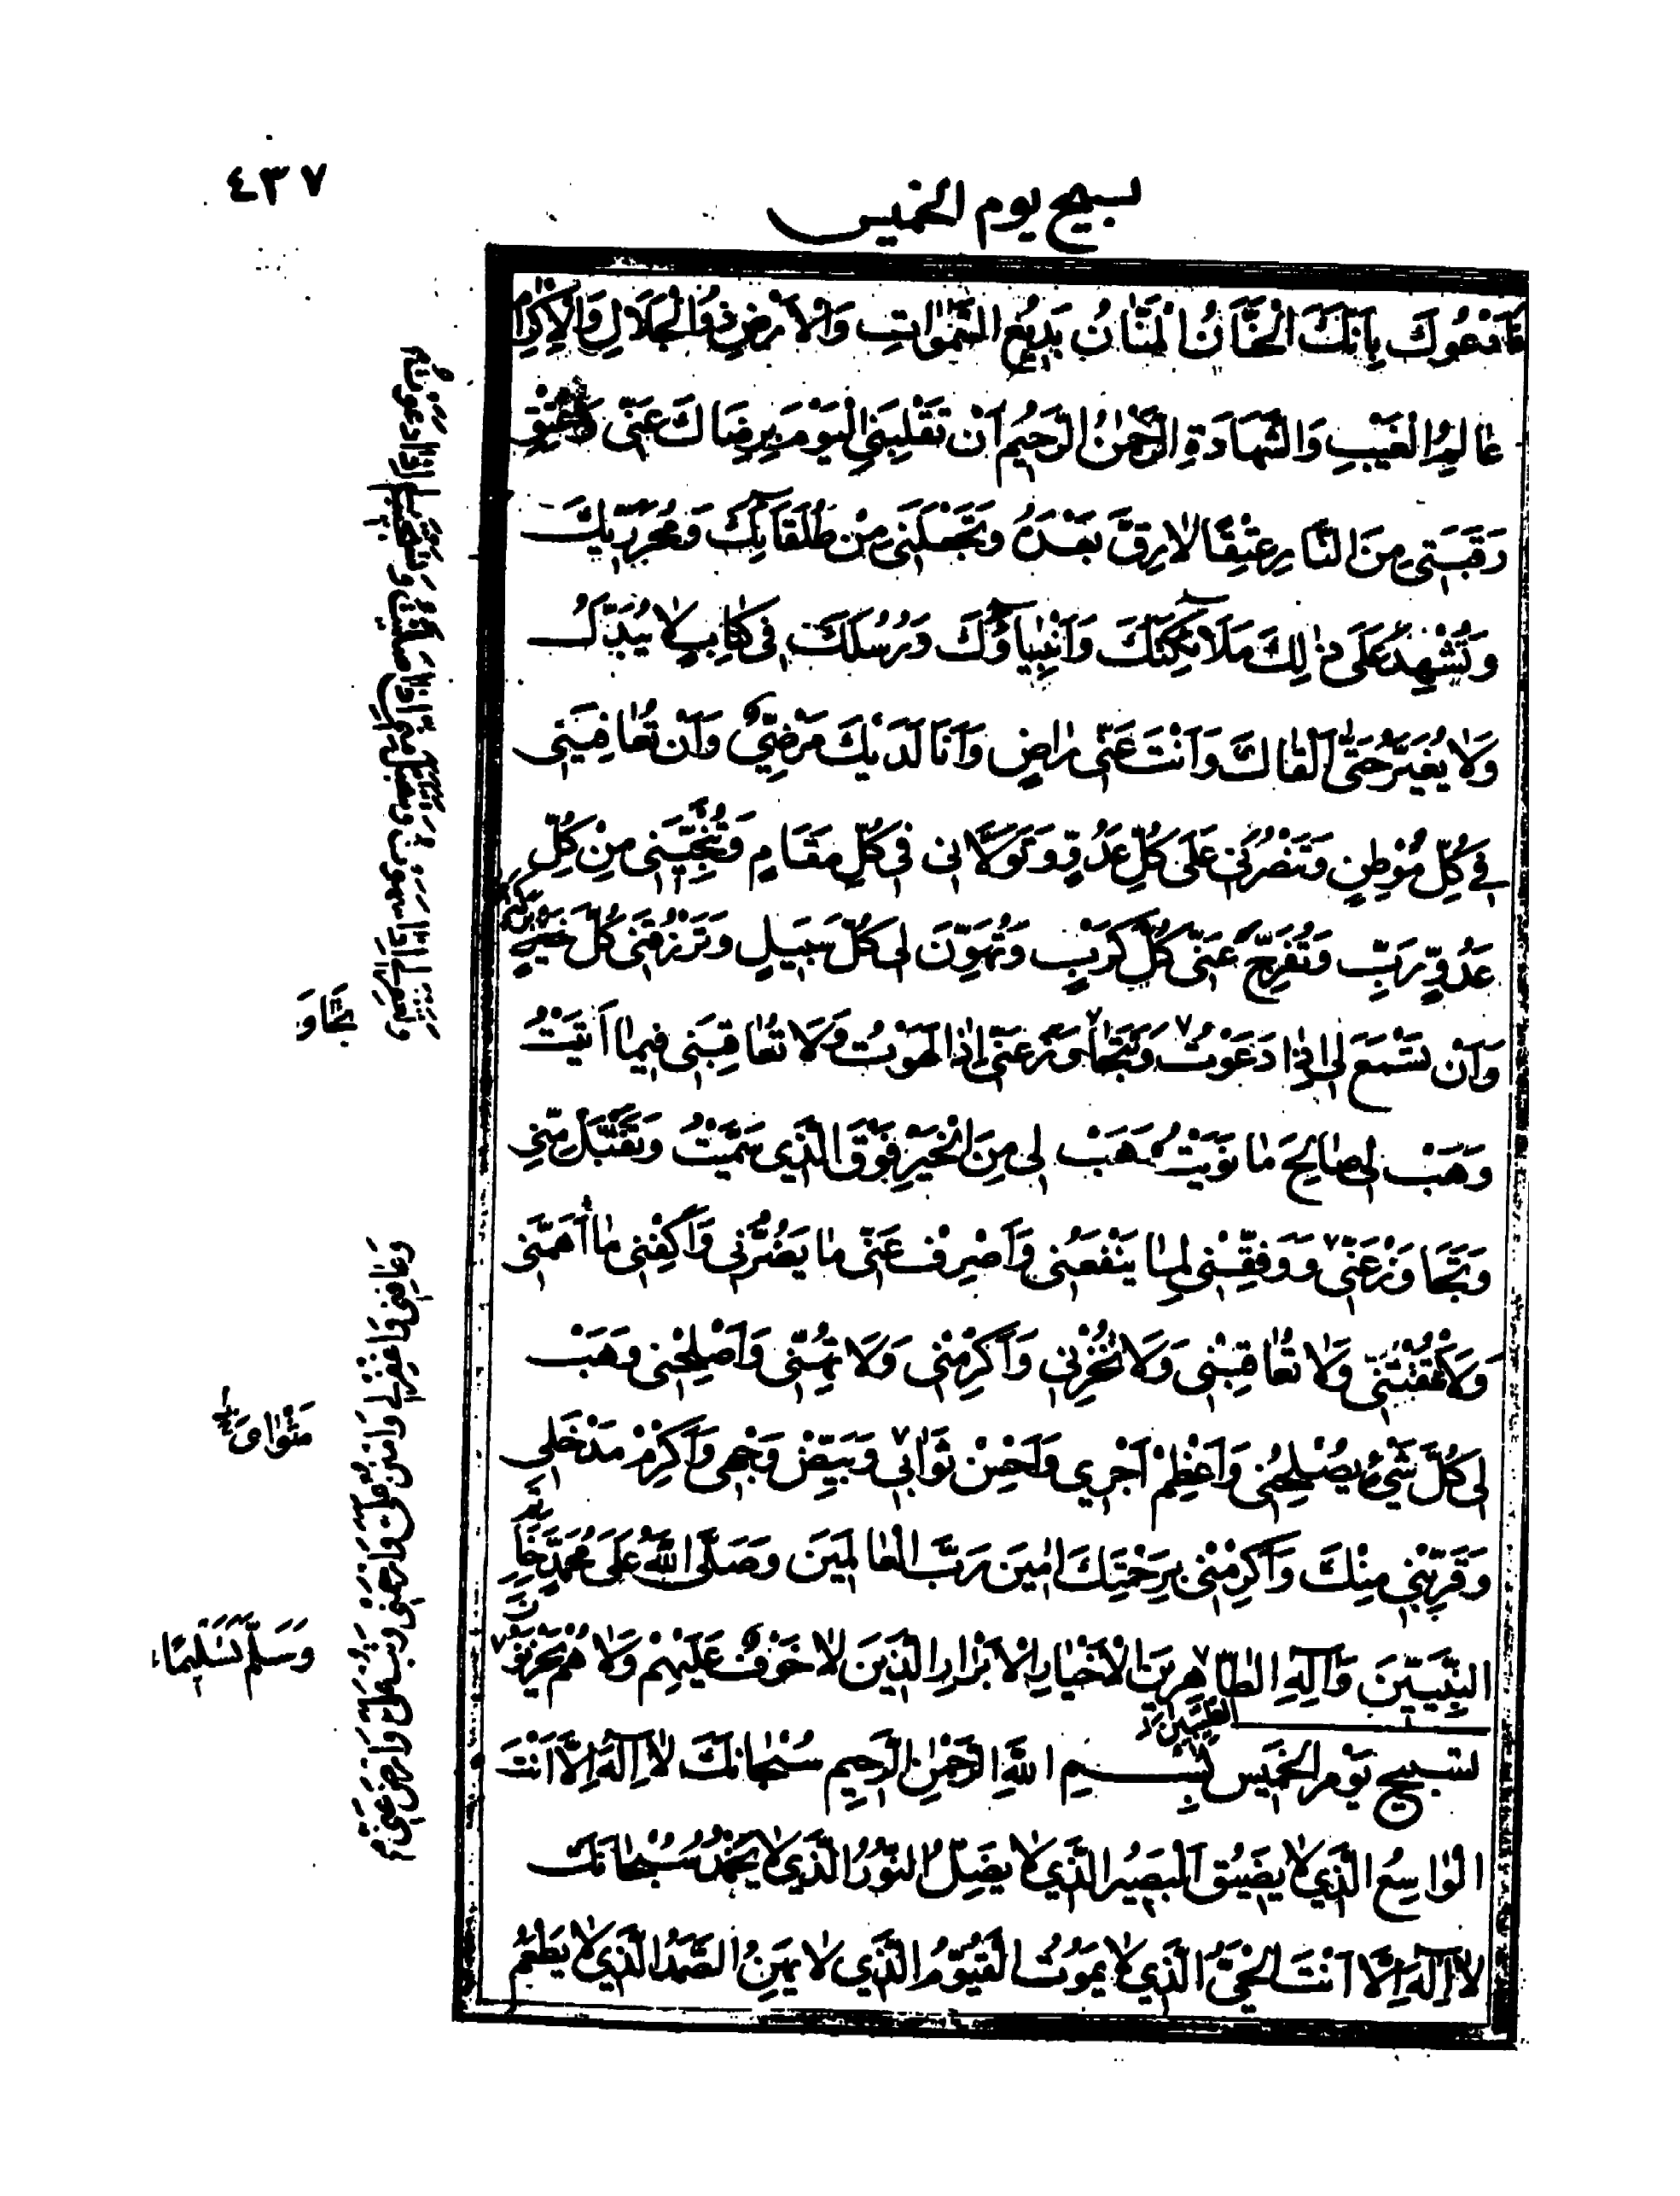 ٤٣٧
تسبيح يوم الخميس
فَاَدْعُوكَ بِاَنَّكَ الْحَنَّانُ الْمَنَّانُ بَدِيعُ السَّمٰوَاتِ وَالْاَرْضِ ذُوالْجَلَالِ وَالْاِكْرَامِ
عَالِمُ الْغَيْبِ وَالشَّهَادَةِ الرَّحْمٰنُ الرَّحِيمُ اَنْ تَقْلِبَنِي الْيَوْمَ بِرِضَاكَ عَنِّى وَعِتْقِ
رَقَبَتِى مِنَ النَّارِ عِتْقًا لَا رِقَّ بَعْدَهُ وَتَجْعَلَنِى مِنْ طُلَقَائِكَ وَمُحَرَّرِيكَ
وَتُشْهِدُ عَلَى ذٰلِكَ مَلَائِكَتَكَ وَاَنْبِيَاؤُكَ وَرُسُلَكَ فِى كِتَابٍ لَا يُبَدَّلُ
وَلَا يُغَيَّرُ حَتَّى اَلْقَاكَ وَاَنْتَ عَنِّى رَاضٍ وَاَنَا لَدَيْكَ مَرْضِيٌّ وَاَنْ تُعَافِيَنِى
فِى كُلِّ مَوْطِنٍ وَتَنْصُرَنِى عَلَى كُلِّ عَدُوٍّ وَتَوَلَّانِى فِى كُلِّ مَقَامٍ وَتُنَجِّيَنِى مِنْ كُلِّ
عَدُوٍّ رَبِّ وَتُفَرِّجَ عَنِّى كُلَّ كَرْبٍ وَتُهَوِّنَ لِى كُلَّ سَبِيلٍ وَتَرْزُقَنِى كُلَّ خَيْرٍ
وَاَنْ تَسْمَعَ لِى اِذَا دَعَوْتُ وَتَتَجَاوَزَ عَنِّى اِذَا لَهَوْتُ وَلَا تُعَاقِبَنِى فِيمَا اَتَيْتُ
وَهَبْ لِى صَالِحَ مَا نَوَيْتُ وَهَبْ لِى مِنَ الْخَيْرِ فَوْقَ الَّذِى سَمَّيْتُ وَتَقَبَّلْ مِنِّى
وَتَجَاوَزْ عَنِّى وَوَفِّقْنِى لِمَا يَنْفَعُنِى وَاَصْرِفْ عَنِّى مَا يَضُرُّنِى وَاَكْفِنِى مَا اَهَمَّنِى
وَلَا تَمْقُتْنِى وَلَا تُعَاقِبْنِى وَلَا تُخْزِنِى وَاَكْرِمْنِى وَلَا تُهِنِّى وَاَصْلِحْنِى وَهَبْ
لِى كُلَّ شَيْءٍ يُصْلِحُنِى وَاَعْظِمْ اَجْرِى وَاَحْسِنْ ثَوَابِى وَبَيِّضْ وَجْهِى وَاَكْرِمْ مَدْخَلِى
وَقَرِّبْنِى مِنْكَ وَاَكْرِمْنِى بِرَحْمَتِكَ اٰمِينَ رَبَّ الْعَالَمِينَ وَصَلَّى اللهُ عَلَى مُحَمَّدٍ خَاتَمِ
النَّبِيِّينَ وَآلِهِ الطَّاهِرِينَ الْاَخْيَارِ الْاَبْرَارِ الَّذِينَ لَا خَوْفٌ عَلَيْهِمْ وَلَا هُمْ يَحْزَنُونَ
الطَّيِّبِينَ
تَسْبِيحُ يَوْمِ الْخَمِيسِ بِسْمِ اللهِ الرَّحْمٰنِ الرَّحِيمِ سُبْحَانَكَ لَا اِلٰهَ اِلَّا اَنْتَ
الْوَاسِعُ الَّذِى لَا يَضِيقُ الْبَصِيرُ الَّذِى لَا يَضِلُّ النُّورُ الَّذِى لَا يَخْمُدُ سُبْحَانَكَ
لَا اِلٰهَ اِلَّا اَنْتَ الْحَيُّ الَّذِى لَا يَمُوتُ الْقَيُّومُ الَّذِى لَا يَهِنُ الصَّمَدُ الَّذِى لَا يَطْعَمُ
تَجَاوَ
وَعَافِنِى وَاغْفِرْلِى وَامْنُنْ عَلَىَّ وَارْحَمْنِى وَتُبْ عَلَىَّ وَارْضَ عَنِّى
مَثْوَاىَ
وَسَلَّمَ تَسْلِيمًا